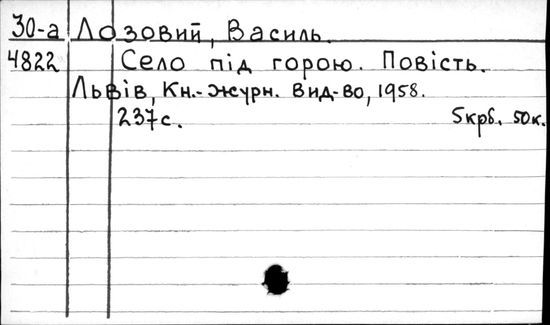 30-а Лозовий, Василь.
4822 Село під горою. Повість.
Львів, Кн.-журн. вид-во, 1958.
237с. 5крб. 50к.